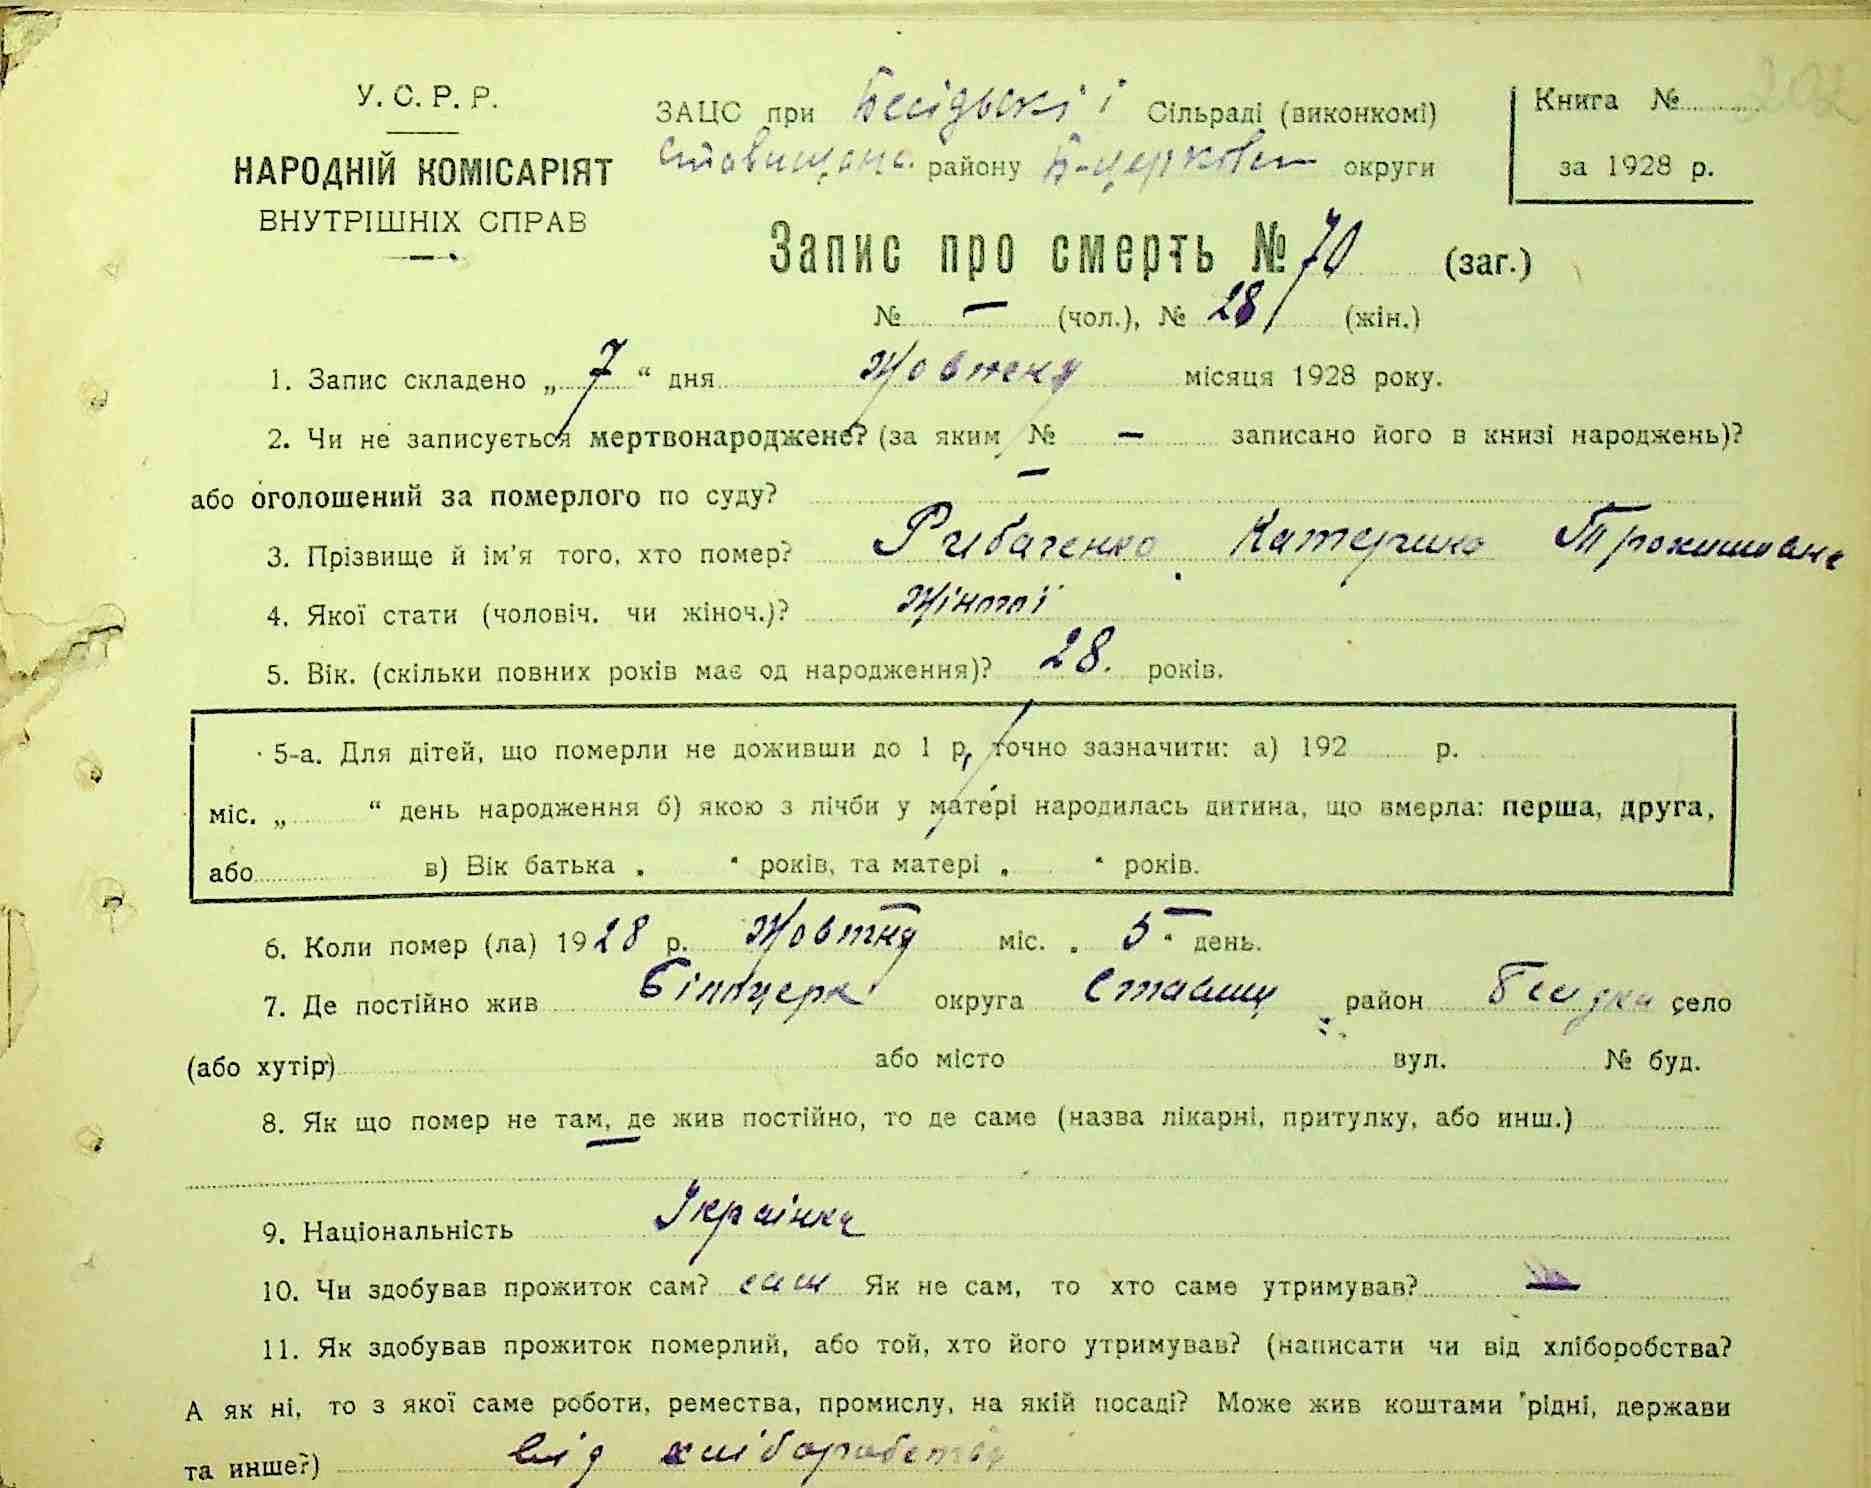 У. С. Р. Р.
НАРОДНІЙ КОМІСАРІЯТ
ВНУТРІШНІХ СПРАВ
ЗАЦС при Бесідьскі і Сільраді (виконкомі)
району Б-церков округи
Книга №
за 1928 р.
Запис про смерть № 70 (заг.)
№ — (чол.), № 28 (жін.)
1. Запис складено „ 7 “ дня Жовтня місяця 1928 року.
2. Чи не записується мертвонароджене? (за яким № — записано його в книзі народжень)?
або оголошений за померлого по суду? —
3. Прізвище й ім’я того, хто помер? Рибаченко Катерина
4. Якої стати (чоловіч. чи жіноч.)? Жіночої
5. Вік. (скільки повних років має од народження)? 28. років.
5-а. Для дітей, що померли не доживши до 1 р, точно зазначити: а) 192 р.
міс. „ “ день народження б) якою з лічби у матері народилась дитина, що вмерла: перша, друга,
або в) Вік батька „ “ років, та матері „ “ років.
6. Коли помер (ла) 1928 р. Жовтня міс. „ 5 “ день.
7. Де постійно жив Білоцерк округа Ставищ район село
(або хутір) або місто вул. № буд.
8. Як що помер не там, де жив постійно, то де саме (назва лікарні, притулку, або инш.)
—
9. Національність Українка
10. Чи здобував прожиток сам? сам Як не сам, то хто саме утримував? —
11. Як здобував прожиток померлий, або той, хто його утримував? (написати чи від хліборобства?
А як ні, то з якої саме роботи, ремества, промислу, на якій посаді? Може жив коштами рідні, держави
та инше?) від хліборобства